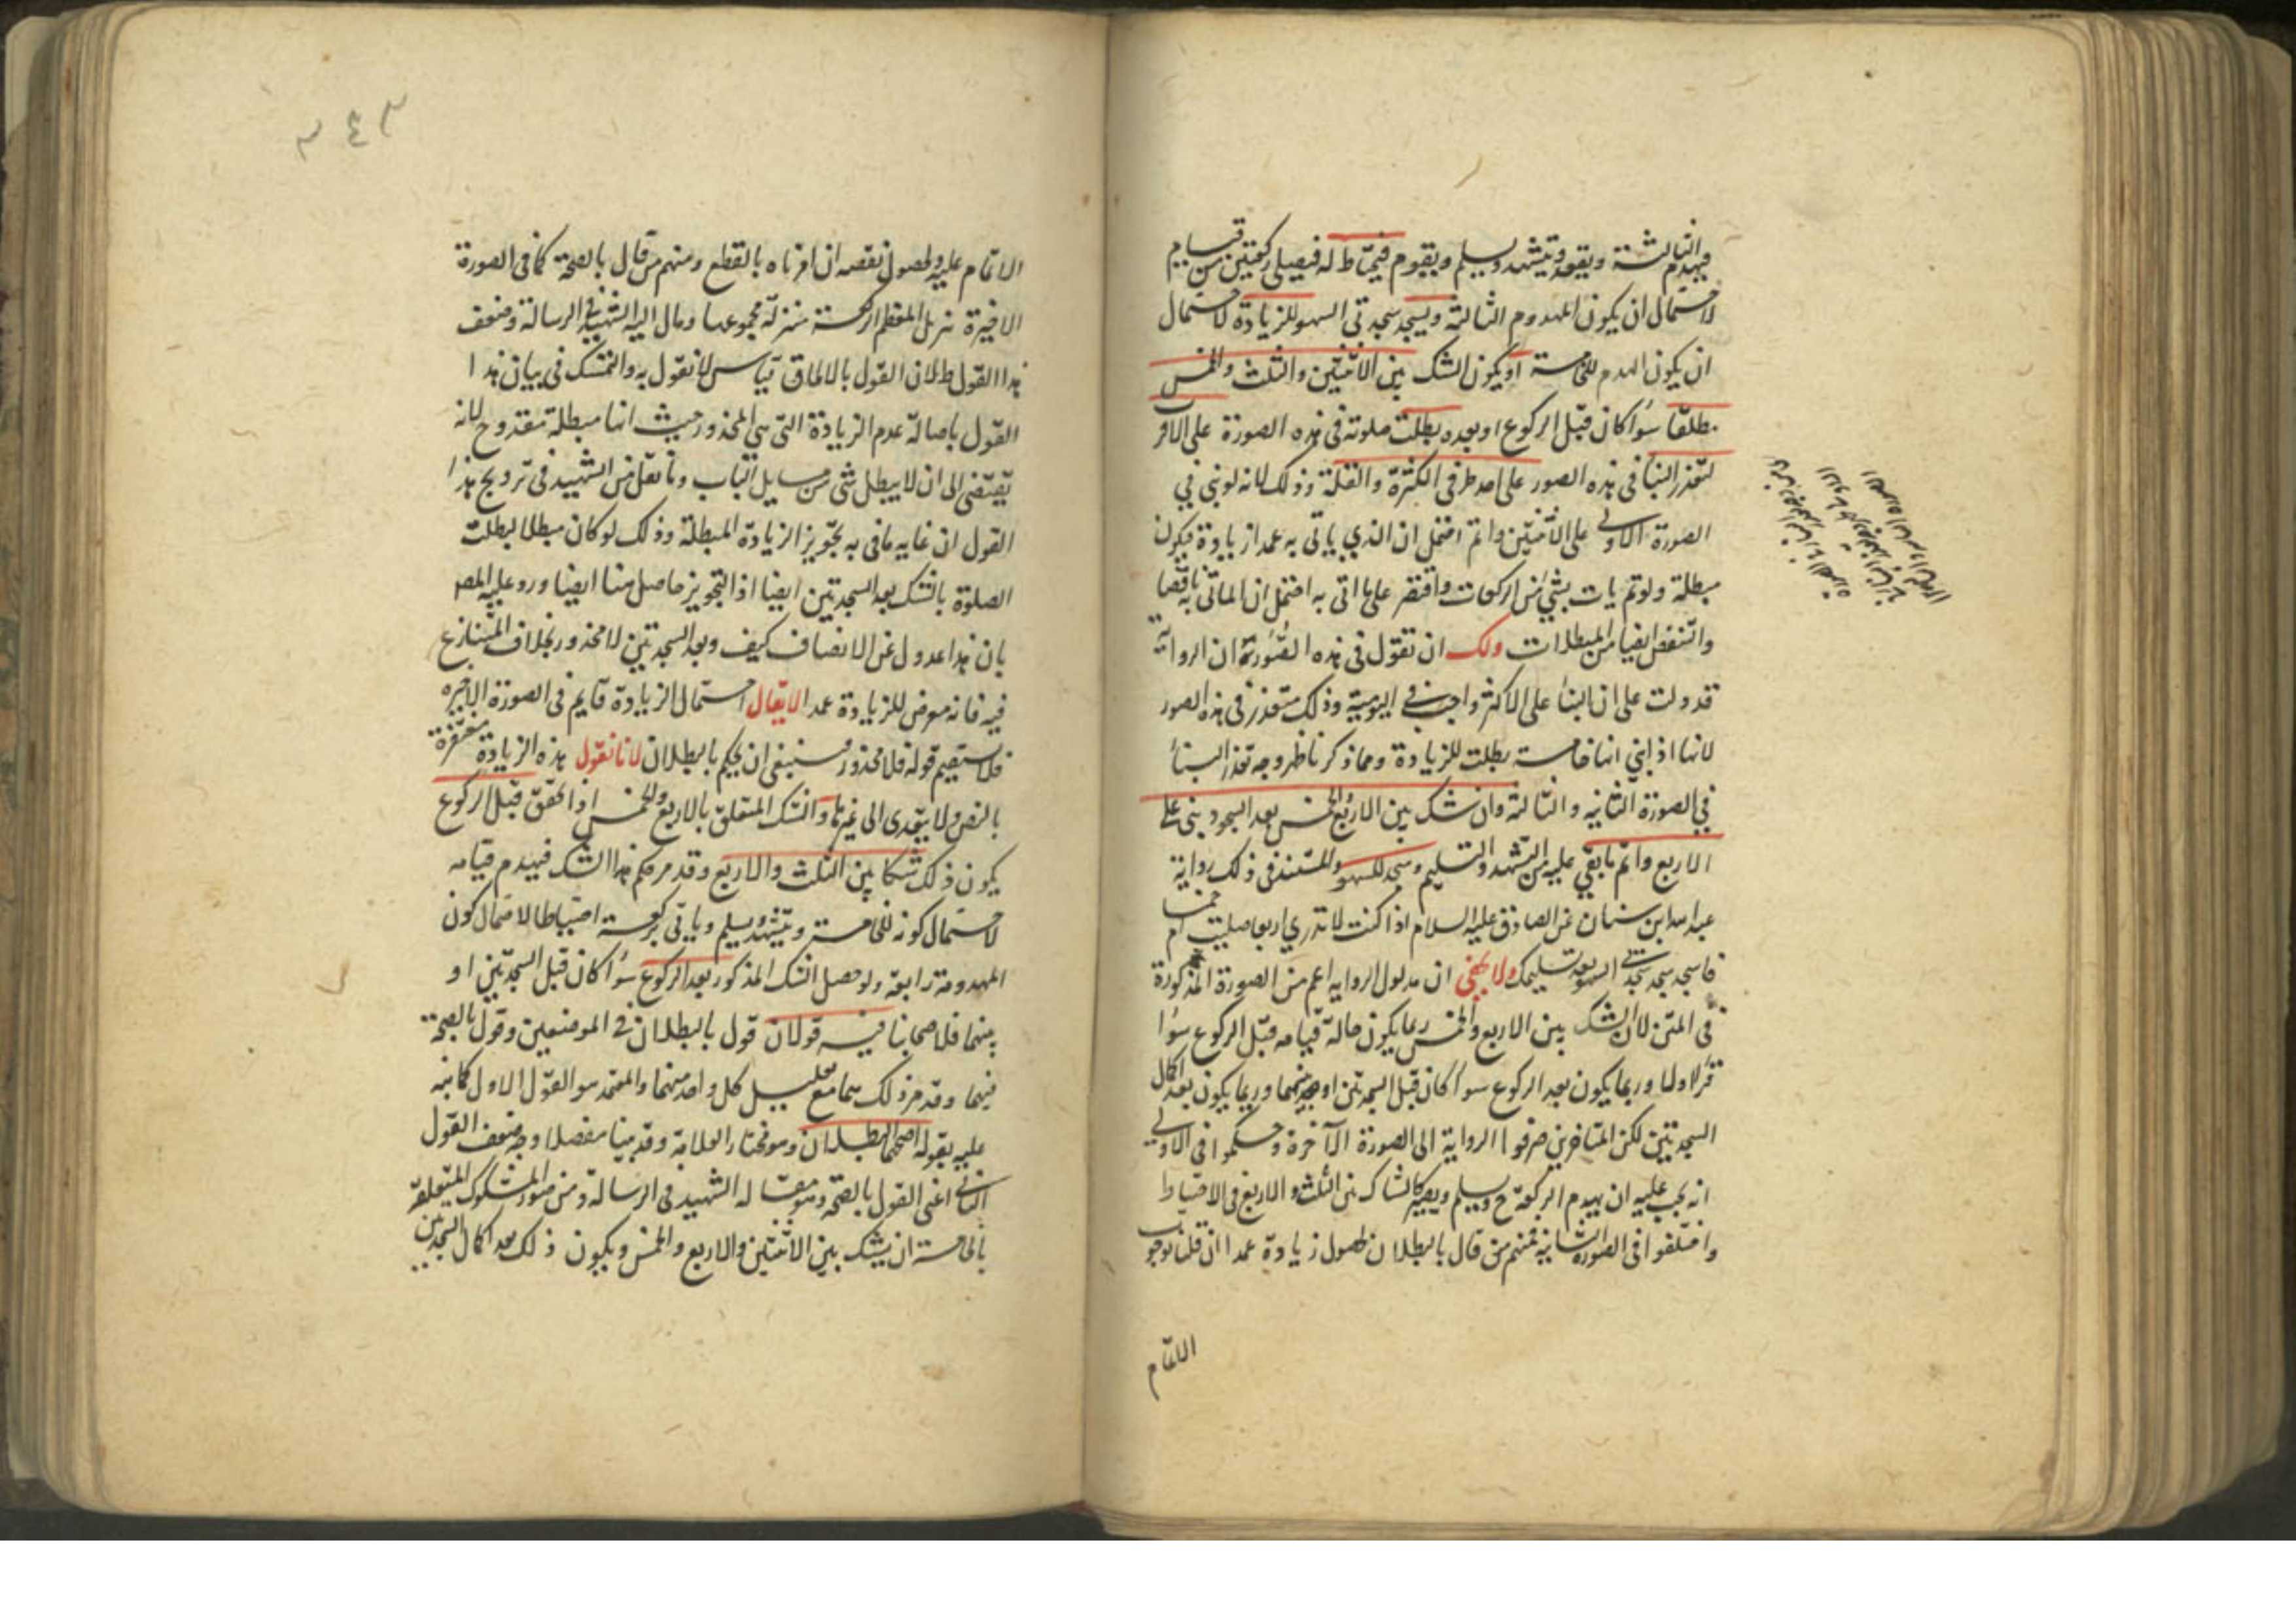 فيهدم الثالثة ويقعد ويتشهد ويسلم ويقوم فيحتاط له فيصلي ركعتين من قيام
لاحتمال ان يكون المهدوم الثالثة ويسجد سجدتي السهو للزيادة لاحتمال
ان يكون الهدم للخامسة او يكون الشك بين الاثنتين والثلث والخمس
مطلقا سواء كان قبل الركوع او بعده بطلت صلوته في هذه الصورة على الاقر
لتعذر البناء في هذه الصور على احد طرفي الكثرة والقلة وذلك لانه لو بني في
الصورة الاولى على الاثنتين واتم احتمل ان الذي ياتي به عمدا زيادة فيكون
مبطلة ولو لم يات بشيء من الركعات واقتصر على ما اتى به احتمل ان الماتي به ناقصا
والنقص ايضا من المبطلات ولك ان تقول في هذه الصورة ان الرواية
قد دلت على ان البناء على الاكثر واجب في اليومية وذلك متعذر في هذه الصور
لانها اذا بني انها خامسة بطلت للزيادة ومما ذكرنا ظهر وجه تعذر البناء
في الصورة الثانيه والثالثة وان شك بين الاربع والخمس بعد السجود بنى على
الاربع واتم ما بقي عليه من التشهد والتسليم وسجد للسهو والمستند في ذلك رواية
عبد الله ابن سنان عن الصادق عليه السلام اذا كنت لا تدري اربعا صليت ام خمسا
فاسجد سجدتي السهو بعد تسليمك ولا يخفى ان مدلول الروايه اعم من الصورة المذكورة
في المتن لان الشك بين الاربع والخمس ربما يكون حالة قيامه قبل الركوع سواء
قرأ اولا وربما يكون بعد الركوع سواء كان قبل السجدتين او بينهما وربما يكون بعد اكمال
السجدتين لكن المتاخرين صرفوا الرواية الى الصورة الآخرة وحكموا في الاولى
انه يجب عليه ان يهدم الركعة ح ويسلم ويصير كالشاك بين الثلث والاربع في الاحتياط
واختلفوا في الصورة الثانية فمنهم من قال بالبطلان لحصول زيادة عمدا ان قلنا بوجوب
الاتمام
الاتمام عليه ولحصول نقصه ان امرناه بالقطع ومنهم من قال بالصحة كما في الصورة
الاخيرة تنزيل المعظم الركعة منزلة مجموعها ومال اليه الشهيد في الرسالة وضعف
هذا القول بطلان القول بالالحاق قياس لا نقول به والتمسك في بيان هذا
القول باصالة عدم الزيادة التي هي المحذور حيث انها مبطلة مقدوح لانه
يقتضي الى ان لا يبطل شي من مسايل الباب وما نقل من الشهيد في ترويج هذا
القول ان غايه ما في به تجويز الزيادة المبطلة وذلك لو كان مبطلا لبطلت
الصلوة بالشك بعد السجدتين ايضا اذ التجويز حاصل هنا ايضا ورد عليه المص
بان هذا عدول عن الانصاف كيف وبعد السجدتين لا محذور بخلاف المتنازع
فيه فانه معرض للزيادة عمدا لا يقال احتمال الزيادة قايم في الصورة الاخيره
فلا يستقيم قوله فلا محذور فينبغي ان يحكم بالبطلان لانا نقول هذه الزيادة مغتفرة
بالنص ولا يتعدى الى غيرها والشك المتعلق بالاربع والخمس اذا تحقق قبل الركوع
يكون ذلك شكا بين الثلث والاربع وقد مر حكم هذا الشك فيهدم قيامه
لاحتمال كونه للخامسة ويتشهد ويسلم وياتي بركعة احتياطا لاحتمال كون
المهدومة رابعة ولو حصل الشك المذكور بعد الركوع سواء كان قبل السجدتين او
بينهما فلاصحابنا فيه قولان قول بالبطلان في الموضعين وقول بالصحة
فيهما وقد مر ذلك بتمامه مع دليل كل واحد منهما والمعتمد هو القول الاول كما نبه
عليه بقوله اصحهما البطلان وهو مختار العلامة وقد بينا مفصلا وجه ضعف القول
الثاني اعني القول بالصحة وهو مقالة الشهيد في الرسالة ومن صور الشكوك المتعلقة
بالخامسة ان يشك بين الاثنتين والاربع والخمس ويكون ذلك بعد اكمال السجدتين